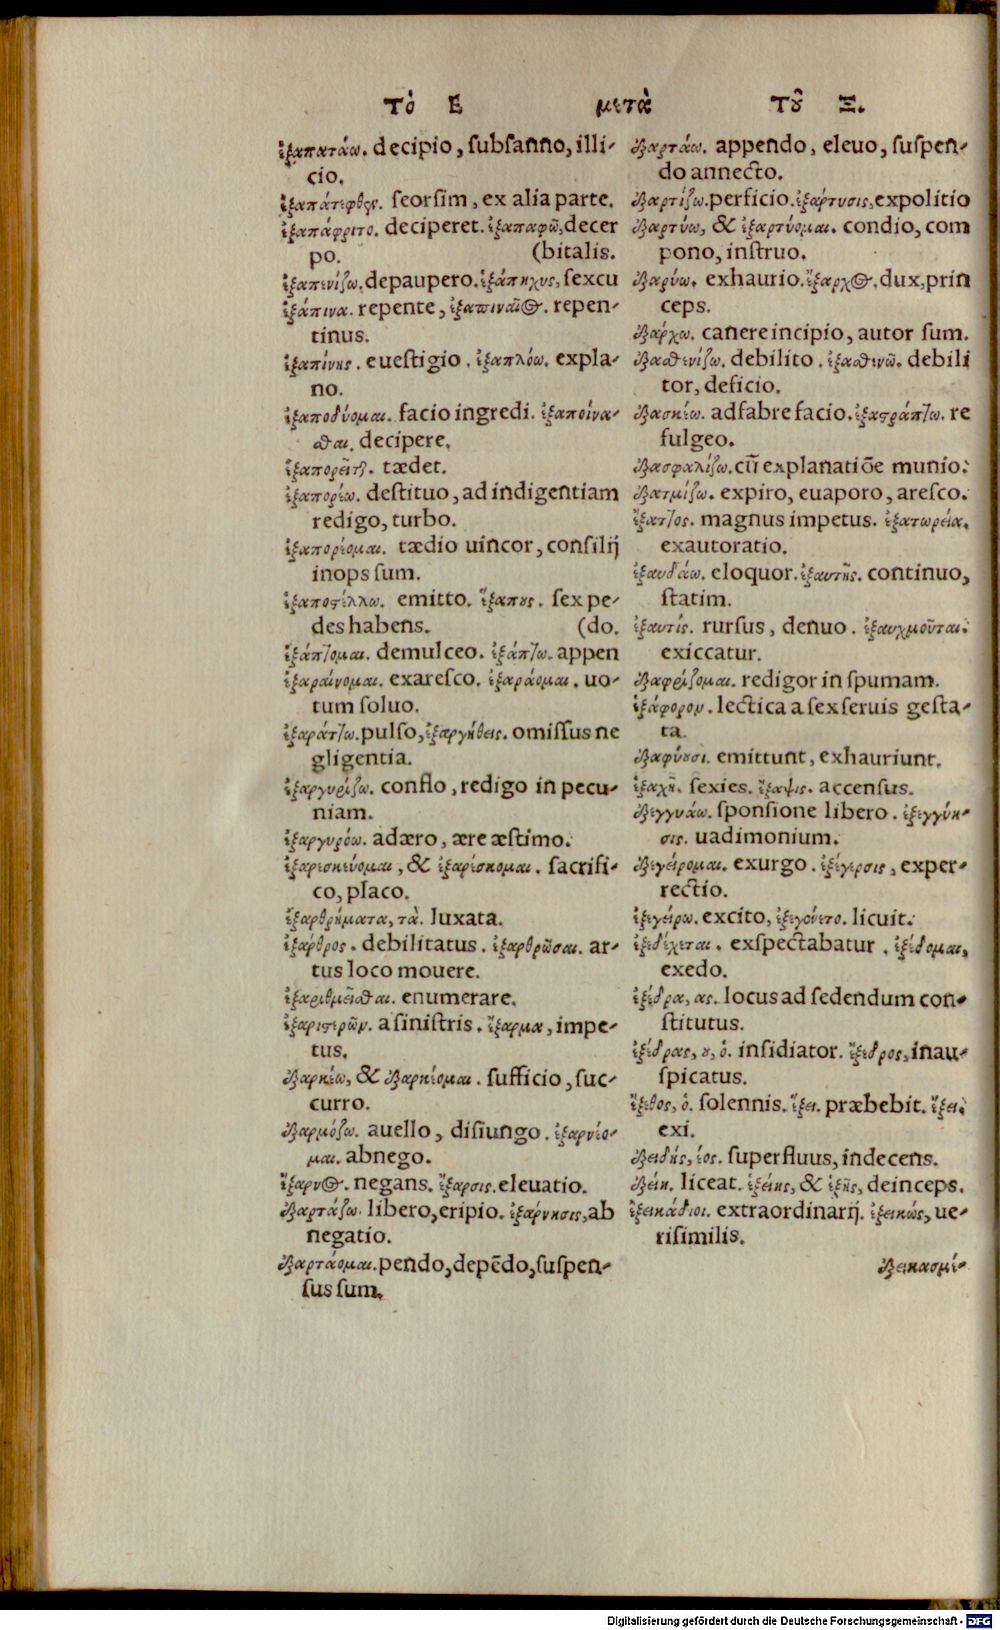 Τὸ Ε μετὰ Τοῦ Ξ.
ἐξαπατάω. decipio, subsanno, illi-
cio.
ἐξαπάτερθεν. seorsim, ex alia parte.
ἐξαπάφοιτο. deciperet. ἐξαπαφῶ, decer
po. (bitalis.
ἐξαπενίζω. depaupero. ἐξάπηχυς, sexcu
ἐξάπινα. repente, ἐξαπιναῖος. repen-
tinus.
ἐξαπίνης. euestigio. ἐξαπλόω. expla-
no.
ἐξαποδύομαι. facio ingredi. ἐξαποίνα-
σθαι. decipere.
ἐξαπορεῖται. tædet.
ἐξαπορέω. destituo, ad indigentiam
redigo, turbo.
ἐξαπορέομαι. tædio uincor, consilij
inops sum.
ἐξαποστέλλω. emitto. ἕξαπους. sex pe-
des habens. (do.
ἐξάπτομαι. demulceo. ἐξάπτω. appen
ἐξαραίνομαι. exaresco. ἐξαράομαι. uo-
tum soluo.
ἐξαράττω. pulso, ἐξαργήθεις. omissus ne
gligentia.
ἐξαργυρίζω. conflo, redigo in pecu-
niam.
ἐξαργυρόω. adæro, ære æstimo.
ἐξαρεσκεύομαι, & ἐξαρέσκομαι. sacrifi-
co, placo.
ἐξαρθρήματα, τὰ. luxata.
ἐξαρθρος. debilitatus. ἐξαρθρῶσαι. ar-
tus loco mouere.
ἐξαριθμεῖσθαι. enumerare.
ἐξαριστερῶν. a sinistris. ἔξαρμα, impe-
tus.
ἐξαρκέω, & ἐξαρκέομαι. sufficio, suc-
curro.
ἐξαρμόζω. auello, disiungo. ἐξαρνέο-
μαι. abnego.
ἔξαρνος. negans. ἔξαρσις. eleuatio.
ἐξαρτάζω. libero, eripio. ἐξάρνησις, ab
negatio.
ἐξαρτάομαι. pendo, depēdo, suspen-
sus sum.
ἐξαρτάω. appendo, eleuo, suspen-
do annecto.
ἐξαρτίζω. perficio. ἐξάρτυσις, expolitio
ἐξαρτύω, & ἐξαρτύομαι. condio, com
pono, instruo.
ἐξαρύω. exhaurio. ἔξαρχος. dux, prin
ceps.
ἐξάρχω. canere incipio, autor sum.
ἐξασθενίζω. debilito. ἐξασθενῶ. debili
tor, deficio.
ἐξασκέω. adfabre facio. ἐξαστράπτω. re
fulgeo.
ἐξασφαλίζω. cū explanatiōe munio.
ἐξατμίζω. expiro, euaporo, aresco.
ἔξαττος. magnus impetus. ἐξατωρεία.
exautoratio.
ἐξαυδάω. eloquor. ἐξαυτῆς. continuo,
statim.
ἐξαυτίς. rursus, denuo. ἐξαυχμοῦται.
exiccatur.
ἐξαφρίζομαι. redigor in spumam.
ἐξάφορον. lectica a sex seruis gesta-
ta.
ἐξαφύουσι. emittunt, exhauriunt.
ἐξαχῆ. sexies. ἔξαψις. accensus.
ἐξεγγυάω. sponsione libero. ἐξεγγύη-
σις. uadimonium.
ἐξεγείρομαι. exurgo. ἐξέγερσις, exper-
rectio.
ἐξεγείρω. excito, ἐξεγόνετο. licuit.
ἐξεδέχεται. exspectabatur. ἐξέδομαι,
exedo.
ἐξέδρα, ας. locus ad sedendum con-
stitutus.
ἐξέδρας, ου, ὁ. insidiator. ἔξεδρος, inau-
spicatus.
ἔξεθος, ὁ. solennis. ἔξει. præbebit. ἔξει.
exi.
ἐξειδής, έος. superfluus, indecens.
ἐξείη. liceat. ἐξείης, & ἑξῆς, deinceps.
ἐξεικάδιοι. extraordinarij. ἐξεικώς, ue-
risimilis.
ἐξεικασμέ-
Digitalisierung gefördert durch die Deutsche Forschungsgemeinschaft - DFG